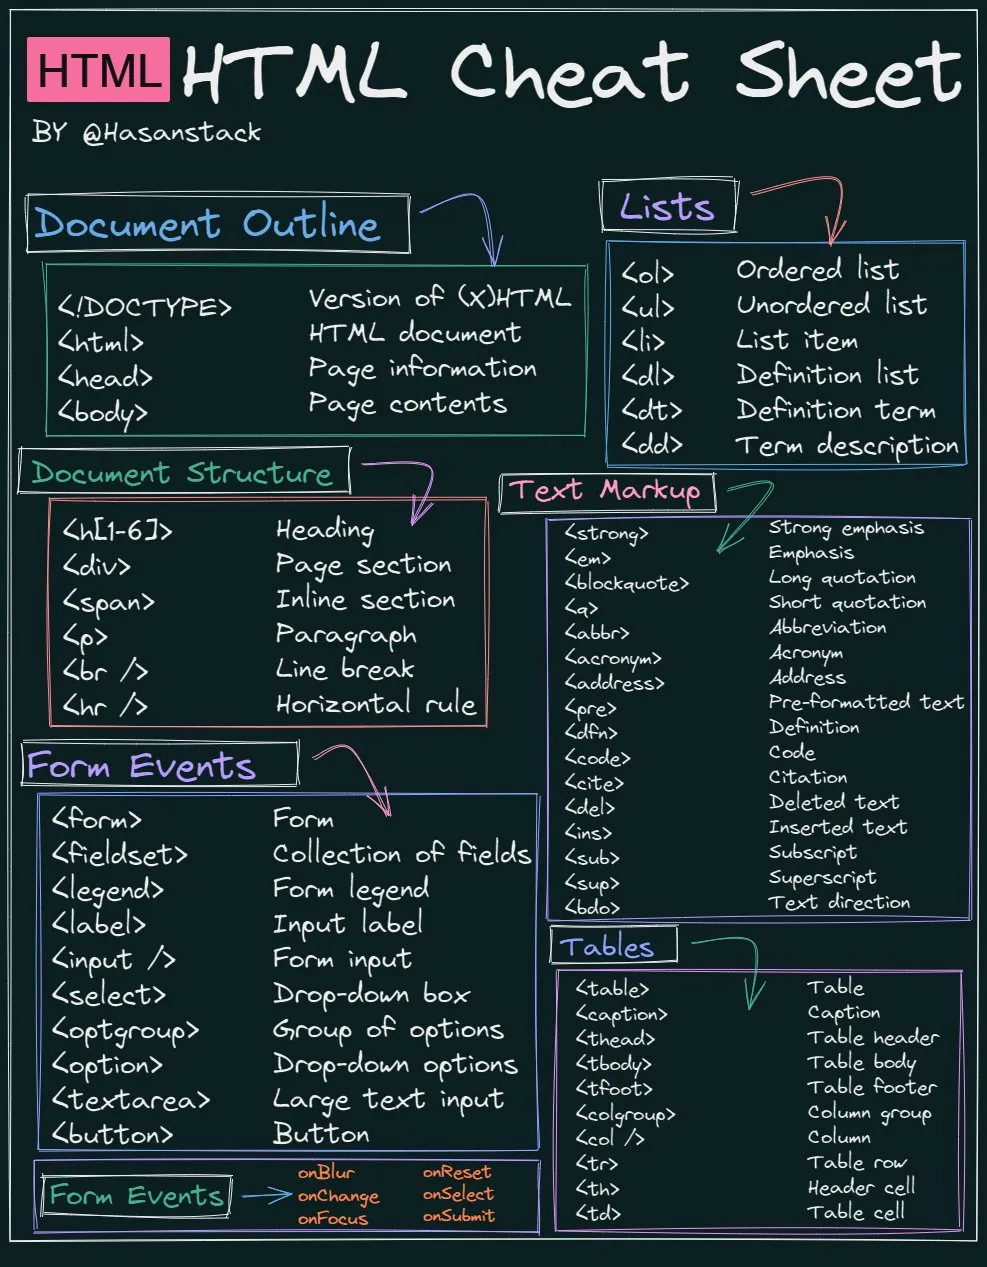 HTML HTML Cheat Sheet
BY @Hasanstack
Document Outline
<!DOCTYPE> Version of (X)HTML
<html> HTML document
<head> Page information
<body> Page contents
Lists
<ol> Ordered list
<ul> Unordered list
<li> List item
<dl> Definition list
<dt> Definition term
<dd> Term description
Document Structure
<h[1-6]> Heading
<div> Page section
<span> Inline section
<p> Paragraph
<br /> Line break
<hr /> Horizontal rule
Text Markup
<strong> Strong emphasis
<em> Emphasis
<blockquote> Long quotation
<q> Short quotation
<abbr> Abbreviation
<acronym> Acronym
<address> Address
<pre> Pre-formatted text
<dfn> Definition
<code> Code
<cite> Citation
<del> Deleted text
<ins> Inserted text
<sub> Subscript
<sup> Superscript
<bdo> Text direction
Form Events
<form> Form
<fieldset> Collection of fields
<legend> Form legend
<label> Input label
<input /> Form input
<select> Drop-down box
<optgroup> Group of options
<option> Drop-down options
<textarea> Large text input
<button> Button
Tables
<table> Table
<caption> Caption
<thead> Table header
<tbody> Table body
<tfoot> Table footer
<colgroup> Column group
<col /> Column
<tr> Table row
<th> Header cell
<td> Table cell
Form Events
onBlur onReset
onChange onSelect
onFocus onSubmit